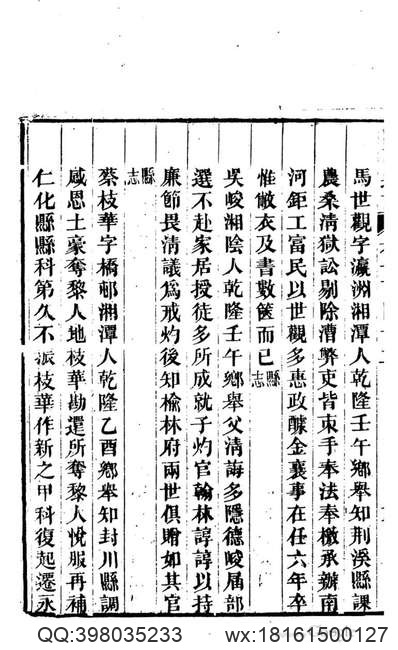 馬世觀字瀛洲湘潭人乾隆壬午鄉舉知荆溪縣課
農桑清獄訟剔除漕弊吏皆束手奉法奉檄承辦南
河鉅工富民以世觀多惠政醵金襄事在任六年卒
惟敝衣及書數篋而已縣志
吳峻湘陰人乾隆壬午鄉舉父清誨多隱德峻屆部
選不赴家居授徒多所成就子灼官翰林諄諄以持
廉節畏清議爲戒灼後知榆林府兩世俱贈如其官
縣志
蔡枝華字橋邨湘潭人乾隆乙酉鄉舉知封川縣調
感恩土豪奪黎人地枝華勘還所奪黎人悅服再補
仁化縣縣科第久不振枝華作新之甲科復起遷永
QQ:398035233 wx:18161500127